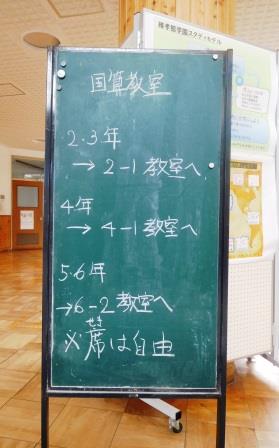 稀孝館学園スタディモデル
国算教室
2・3年
→2-1教室へ
4年
→4-1教室へ
5・6年
→6-2教室へ
せき
※席は自由